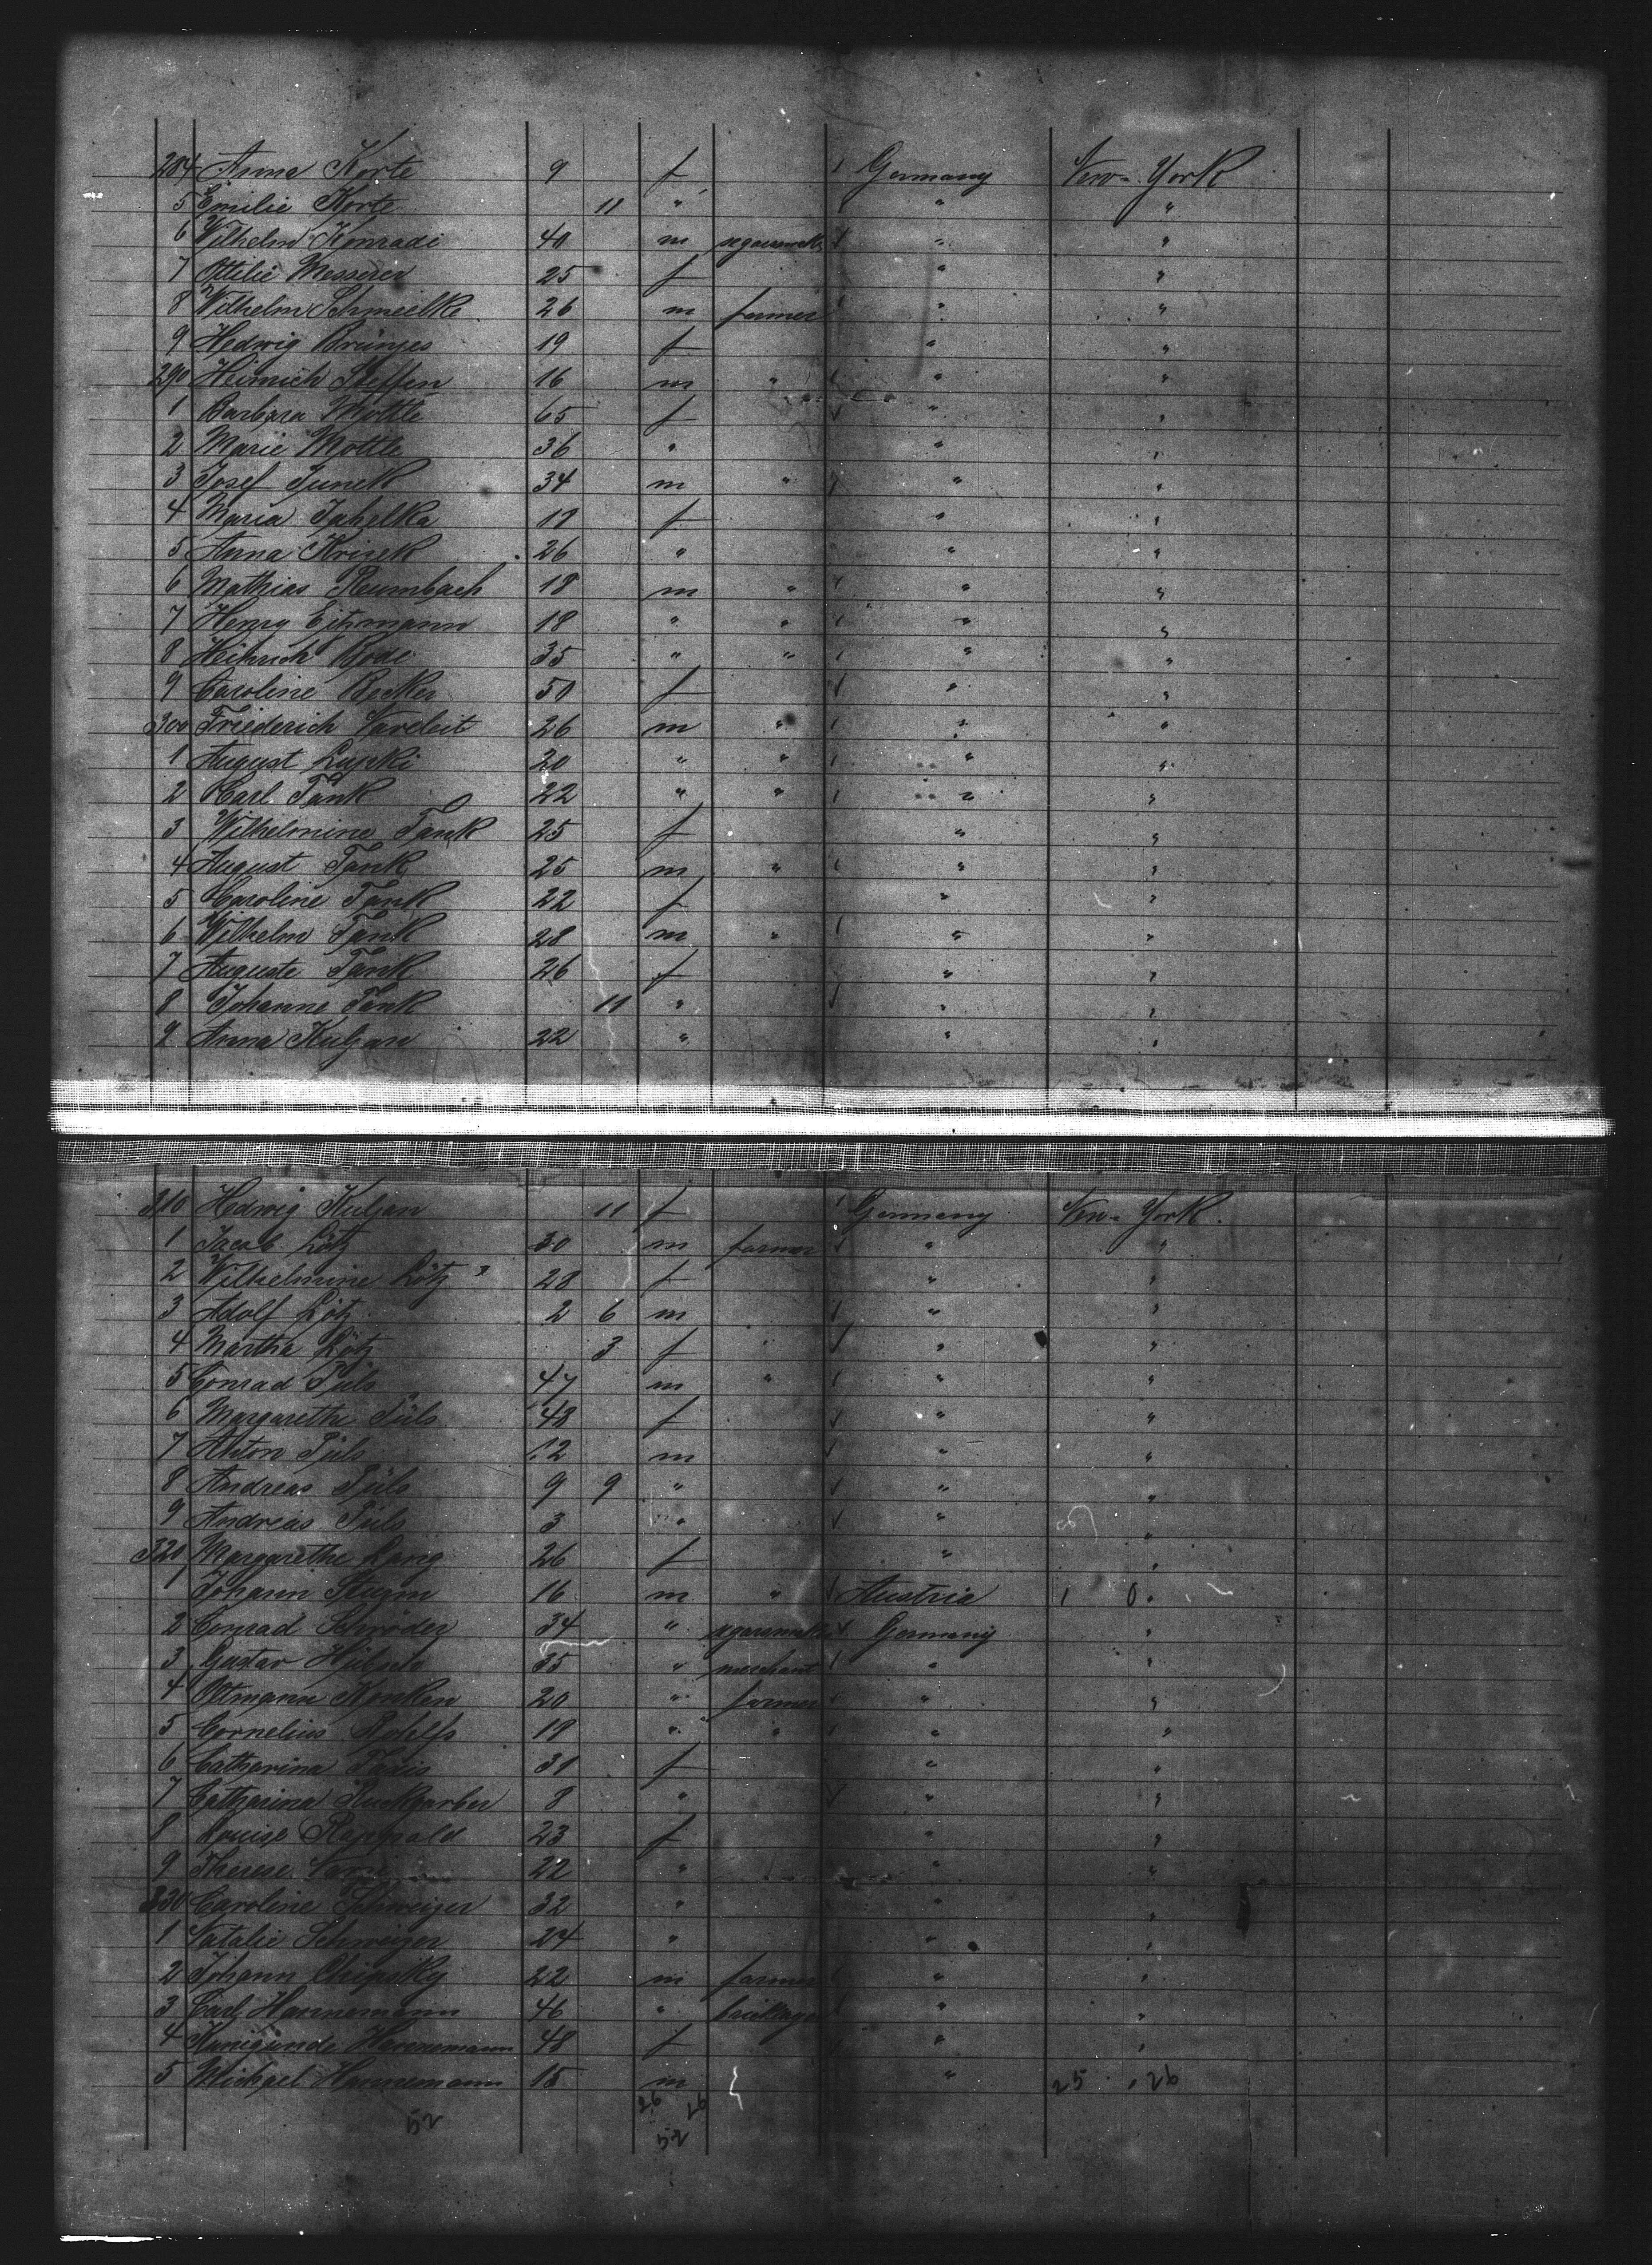 284 Anna Korte 9 f Germany New-York
5 Emilie Korte 11 " " "
6 Wilhelm Konradi 40 m segarsmak " "
7 Ottilie Messerer 25 f " "
8 Wilhelm Schmielke 26 m farmer " "
9 Hedwig Brünjes 19 f " "
290 Heinrich Steffen 16 m " " "
1 Barbara Mottle 65 f " "
2 Marie Mottle 36 " " "
3 Josef Junek 34 m " " "
4 Maria f " "
5 Anna Krisek 26 " " "
6 Mathias Rumbach 18 m " " "
7 Henry Eitzmann 18 " " " "
8 Heinrich Bode 35 " " " "
9 Caroline Becker 50 f " "
300 Friederich Vareleit 26 m " " "
1 August Lupki 20 " " " "
2 Carl Tank 22 " " " "
3 Wilhelmine Tank 25 f " "
4 August Tank 25 m " " "
5 Caroline Tank 22 f " "
6 Wilhelm Tank 28 m " " "
7 Auguste Tank 26 f " "
8 Johanne Tank 11 " " "
9 Anna Kuljan 22 " " "
310 Hedwig Kuljan 11 f Germany New-York.
1 Jacob Lötz 30 m farmer " "
2 Wilhelmine Lötz 28 f " "
3 Adolf Lötz 2 6 m " "
4 Martha Lötz 3 f " "
5 Conrad Püls 47 m " " "
6 Margarethe Püls 48 f " "
7 Anton Püls 12 m " "
8 Andreas Püls 9 9 " " "
9 Andreas Püls 3 " " "
320 Margarethe Lang 26 f " "
1 Johann Sturm 16 m " Austria "
2 Conrad Schröder 34 " segarsmak Germany "
3 Gustav 35 " merchant " "
4 Oltmann Konken 20 " farmer " "
5 Cornelius Rohlfs " " " "
6 Catharina 31 f " "
7 Catharina Ruckgarber 8 " " "
8 Louise Rappold 23 f " "
9 Therese 22 " " "
330 Caroline Schweizer 32 " " "
1 Natalie Schweizer 24 " " "
2 Johann Chipsky 22 m farmer " "
3 Carl Hannemann 46 " bricklayer " "
4 Kunigunde Hannemann 48 f " "
5 Michael Hannemann 15 m " 25 26
26 26
52 52